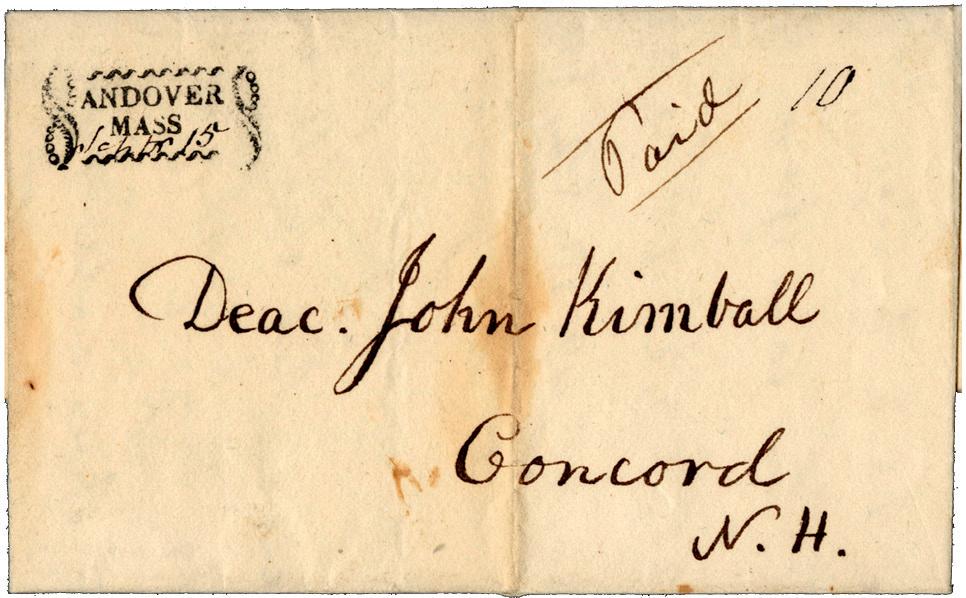 ANDOVER
MASS
Septr 15
Paid 10
Deac. John Kimball
Concord
N. H.